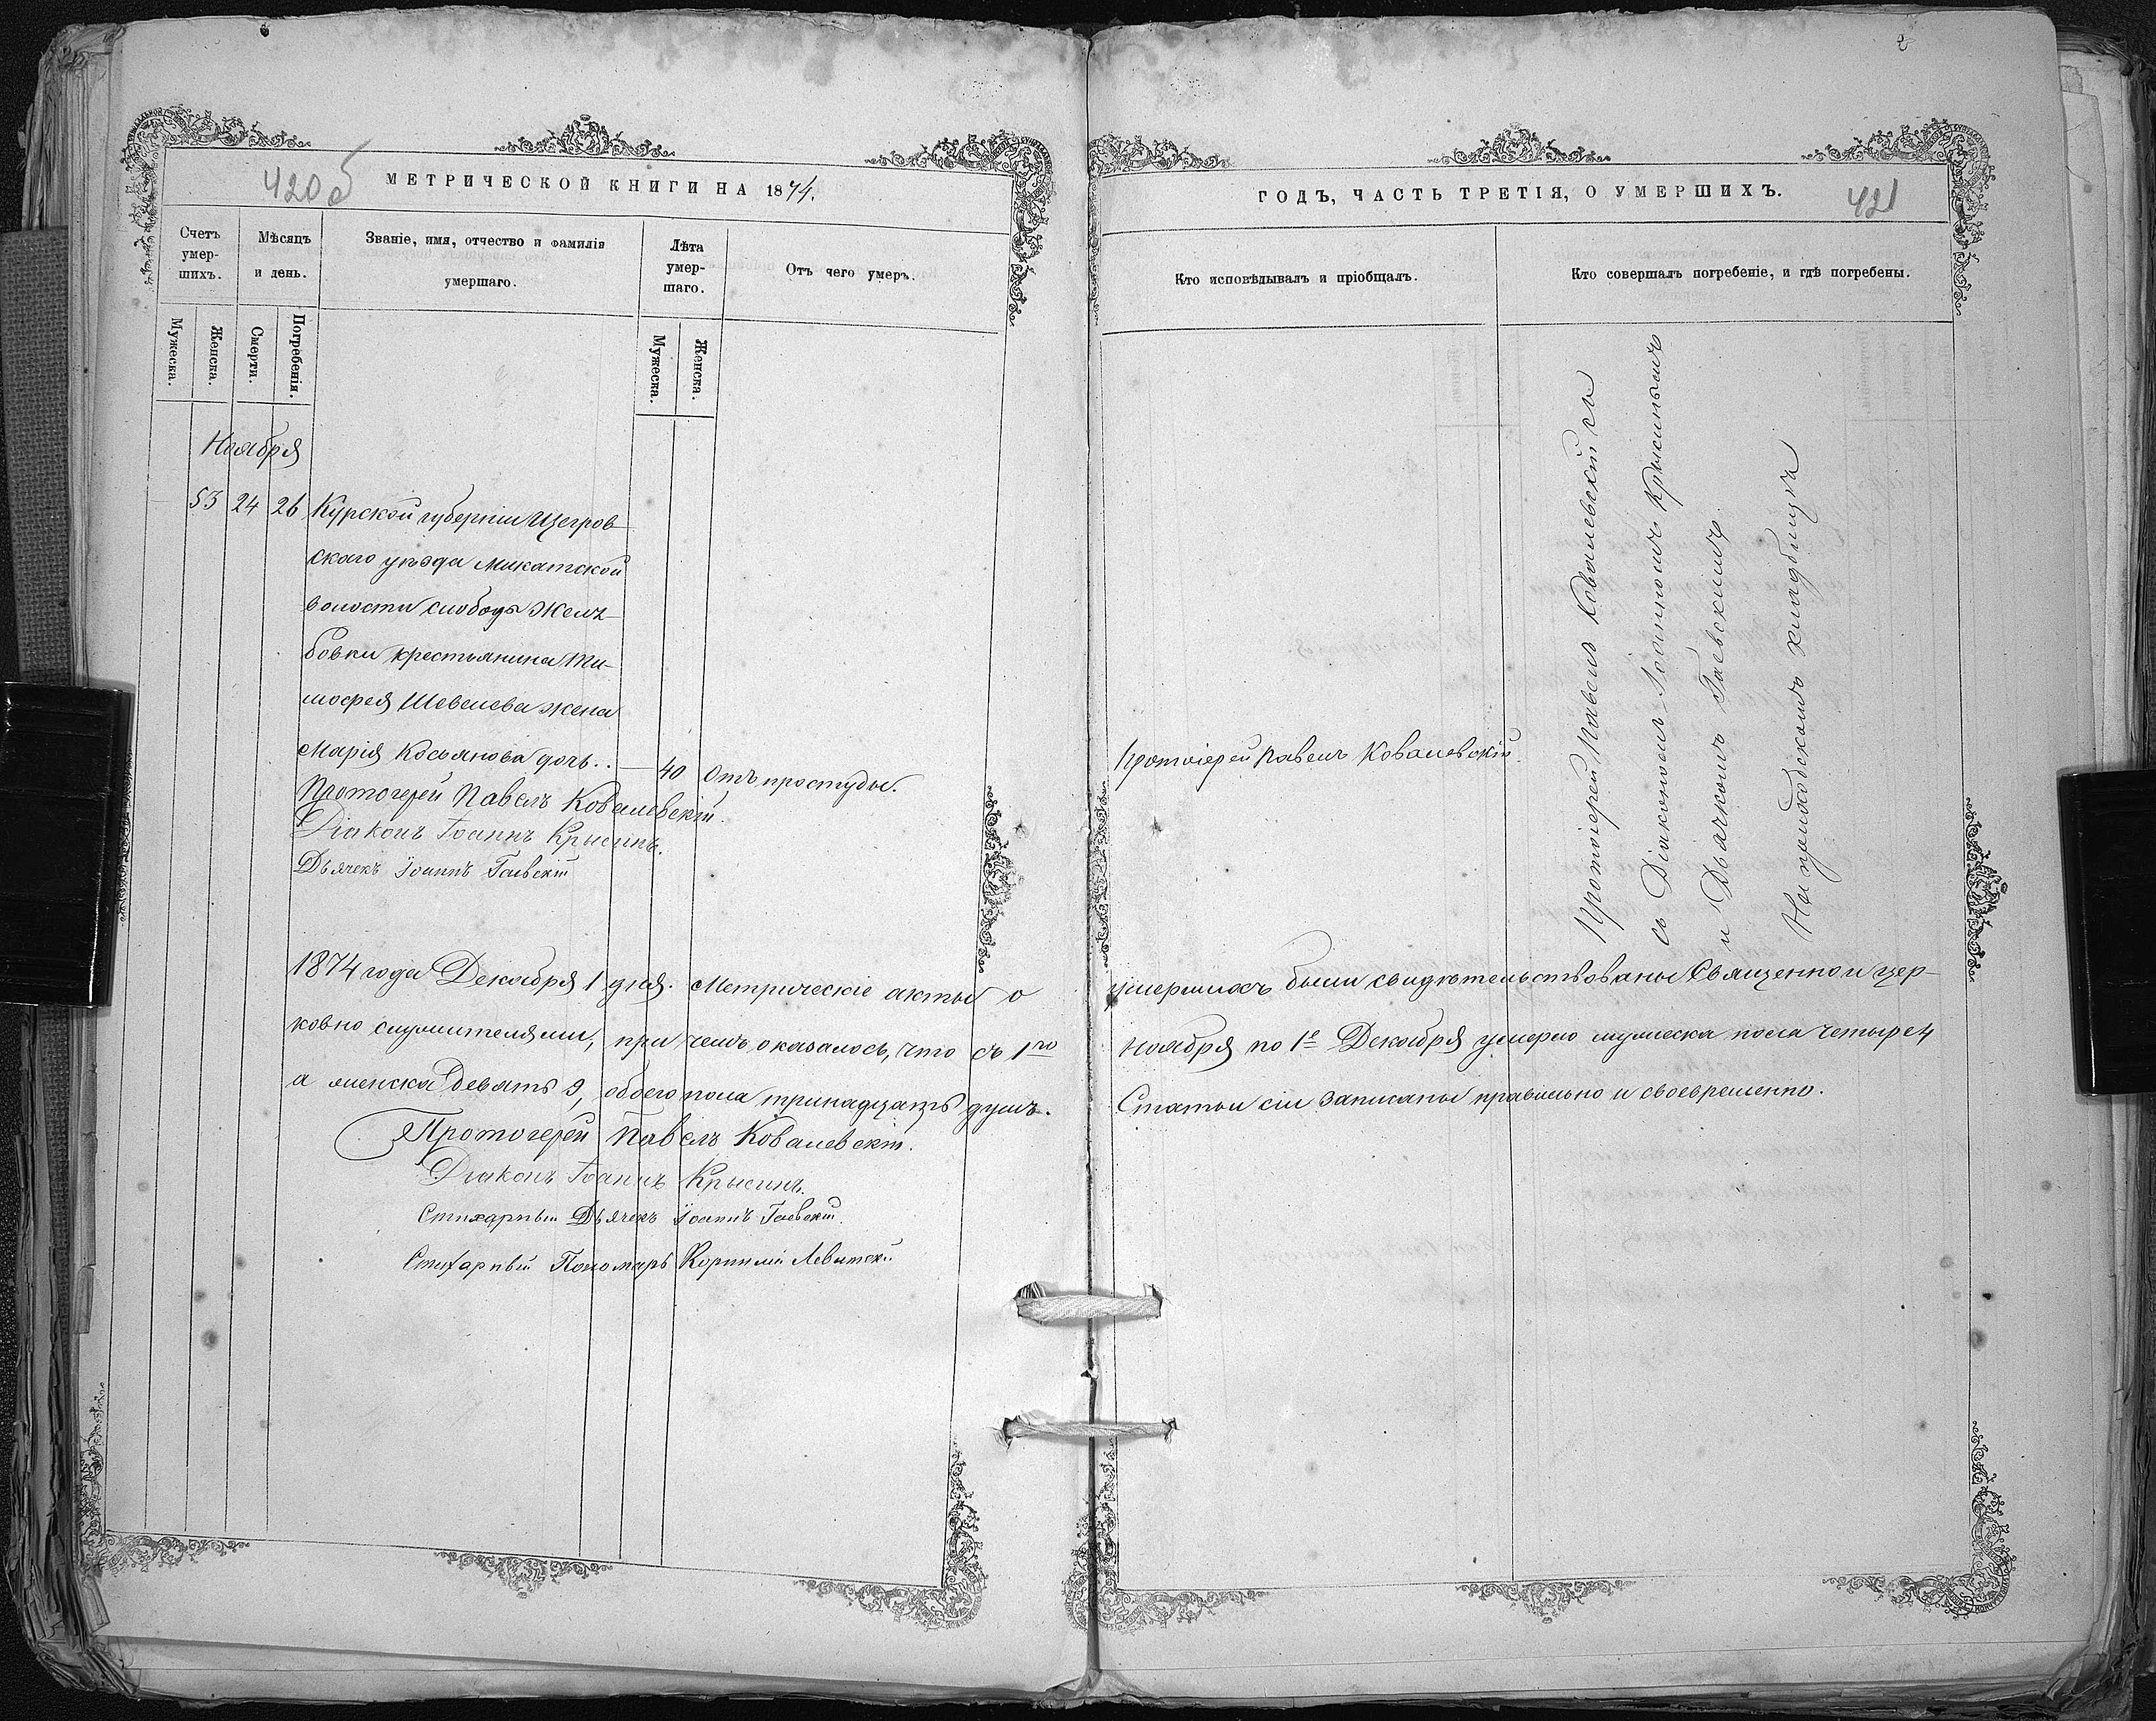 420об
МЕТРИЧЕСКОЙ КНИГИ НА 1874.
Счетъ умер-шихъ.
Мѣсяцъ и день.
Званіе, имя, отчество и фамилія умершаго.
Лѣта умер-шаго.
Отъ чего умеръ.
Мужеска.
Женска.
Смерти.
Погребенія.
Мужеска.
Женска.
Ноября
53 24 26 Курской губерніи Щегров-
скаго уѣзда
волости слободы
бовки крестьянина Ти-
мофея Шевелева жена
Марія Косьянова дочь.. — 40 Отъ простуды.
Протоіерей Павелъ Ковалевскій.
Діаконъ Іоаннъ Крысинъ.
Дьячекъ Іоаннъ Гаевскій
1874 года Декабря 1 дня. Метрическіе акты о
ковно служителями, при чемъ оказалось, что съ 1го
а женска девять 9, обоего пола тринадцать душъ.
Протоіерей Павелъ Ковалевскій.
Діаконъ Іоаннъ Крысинъ.
Стихарный Дьячекъ Іоаннъ Гаевскій.
Стихарный Пономарь Корнилій Левитскій
ГОДЪ, ЧАСТЬ ТРЕТІЯ, О УМЕРШИХЪ.
421
Кто исповѣдывалъ и пріобщалъ.
Кто совершалъ погребеніе, и гдѣ погребены.
Протоіерей Павелъ Ковалевскій.
Протоіерей Павелъ Ковалевскій съ
съ Діакономъ Іоанномъ Крысинымъ
и Дьячкомъ Гаевскимъ.
На приходскомъ кладбищѣ
умершихъ были свидѣтельствованы Священно и цер-
Ноября по 1е Декабря умерло мужеска пола четыре 4
Статьи сіи записаны правильно и своевременно.